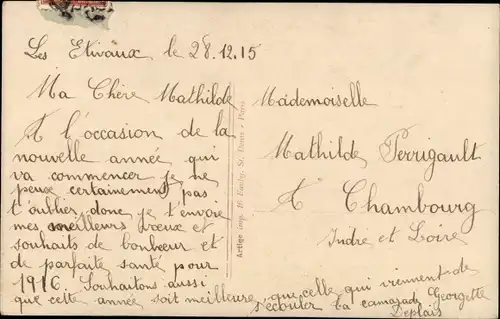 Les Etivaux le 28.12.15
Ma Chère Mathilde
A l'occasion de la
nouvelle année qui
va commencer je ne
peuse certainement pas
t'oublier donc je t'envoie
mes meilleurs voeux et
souhaits de bonheur et
de parfaite santé pour
1916. Souhaitons aussi
que cette année soit meilleure que celle qui viennent de
s'écouler ta camarade Georgette
Deplais
Artige imp. 16 Faubg. St. Denis - Paris
Mademoiselle
Mathilde Perrigault
A Chambourg
Indre et Loire